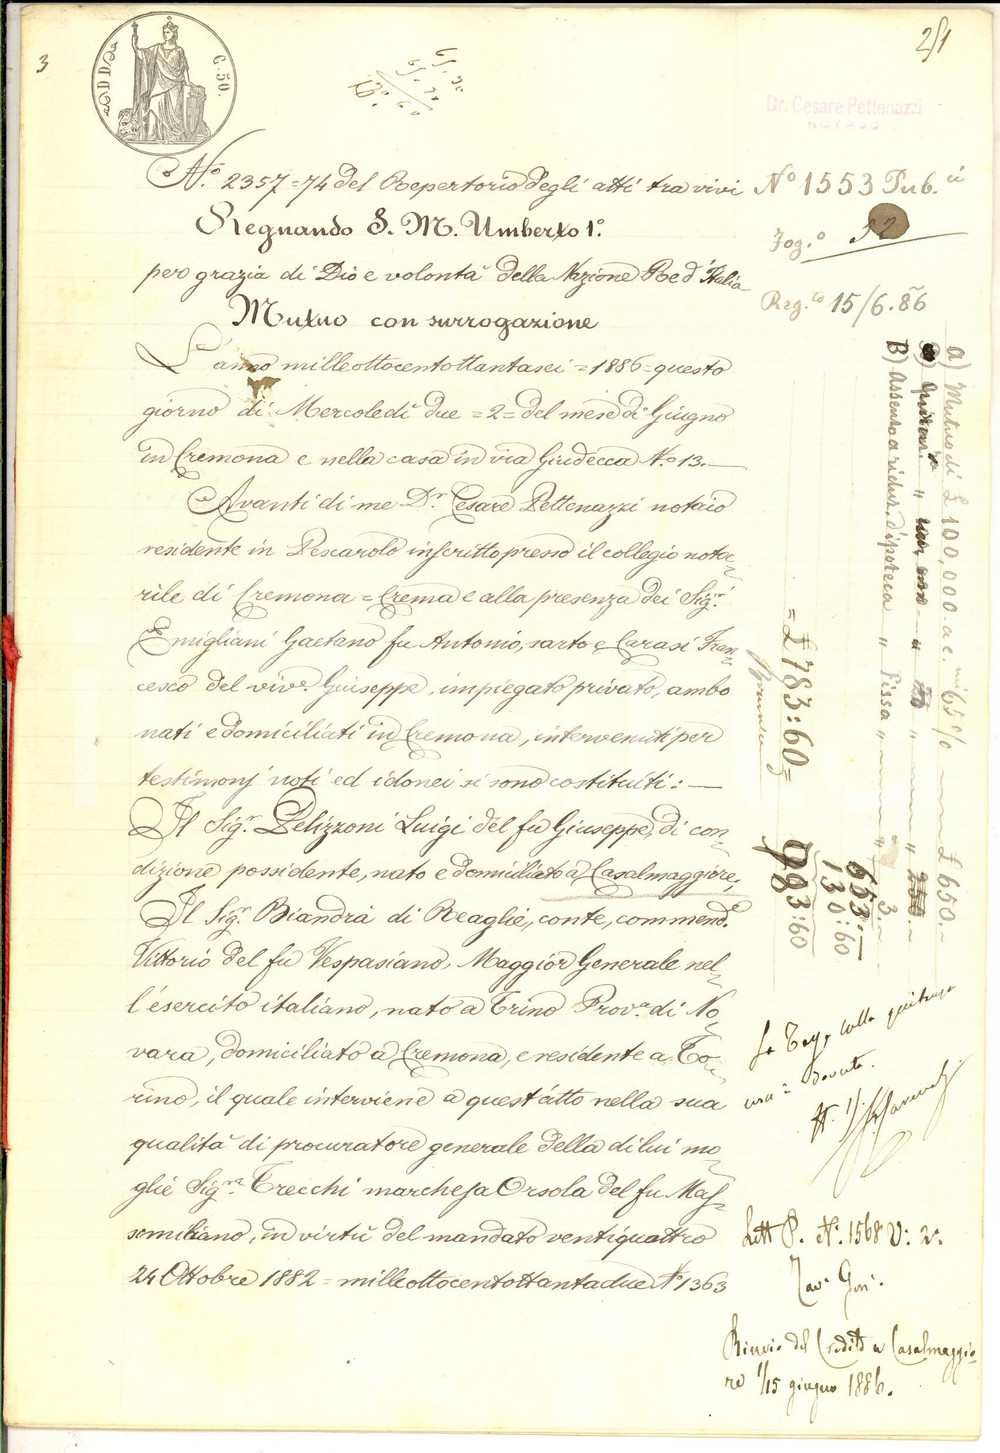 3
ADDA
C. 50.
65.30
65.30
130.60
2/1
Dr. Cesare Pettenazzi
NOTAJO
N.° 2357=74 del Repertorio degli atti tra vivi
Regnando S. M. Umberto 1°.
per grazia di Dio e volontà della Nazione Re d'Italia
Mutuo con surrogazione
L'anno milleottocentottantasei = 1886 = questo
giorno di Mercoledì due = 2 = del mese di Giugno
in Cremona e nella casa in via Giudecca N.° 13. —
Avanti di me D.r Cesare Pettenazzi notaio
residente in Pescarolo inscritto presso il collegio nota=
rile di Cremona = Crema e alla presenza dei Sig.ri
Emigliani Gaetano fu Antonio, sarto e Carasi Fran=
cesco del viv.e Giuseppe, impiegato privato, ambo
nati e domiciliati in Cremona, intervenuti per
testimonj noti ed idonei si sono costituiti: —
Il Sig.r Pelizzoni Luigi del fu Giuseppe, di con=
dizione possidente, nato e domiciliato a Casalmaggiore,
Il Sig.r Biandrà di Reaglie, conte, commend.e
Vittorio del fu Vespasiano, Maggior Generale nel=
l'esercito italiano, nato a Trino Prov.a di No=
vara, domiciliato a Cremona, e residente a To=
rino, il quale interviene a quest'atto nella sua
qualità di procuratore generale della di lui mo=
glie Sig.ra Trecchi marchesa Orsola del fu Mas=
similiano, in virtù del mandato ventiquattro
24 Ottobre 1882 = milleottocentottantadue N.° 1363
N° 1553 Pub.ci
Fog.° 52
Reg.to 15/6.86
a) Mutuo di £ 100,000 a c.mi 65 % — £ 650.-
B) Assenso a riduz. d'ipoteca " Fissa " — " 3.-
653.-
130:60
783:60
= £ 783:60 =
La Tassa sulla quitanza
non è dovuta.
Lett P. N.° 1568 V: 2.
Rinvio del Credito a Casalmaggio=
re 1/15 giugno 1886.